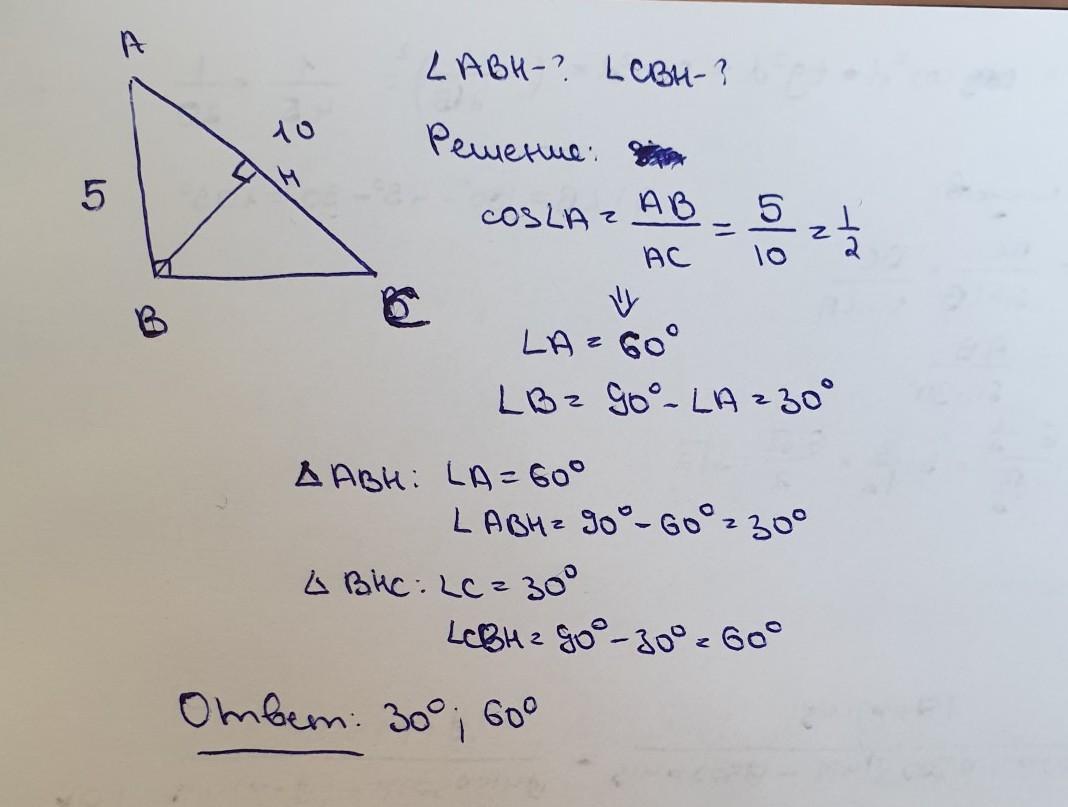 A
∠ABH-? ∠CBH-?
10
Решение:
H
5
cos∠A = AB/AC = 5/10 = 1/2
B
C
⇓
∠A = 60°
∠B = 90° - ∠A = 30°
△ABH: ∠A = 60°
∠ABH = 90° - 60° = 30°
△BHC: ∠C = 30°
∠CBH = 90° - 30° = 60°
Ответ: 30°; 60°